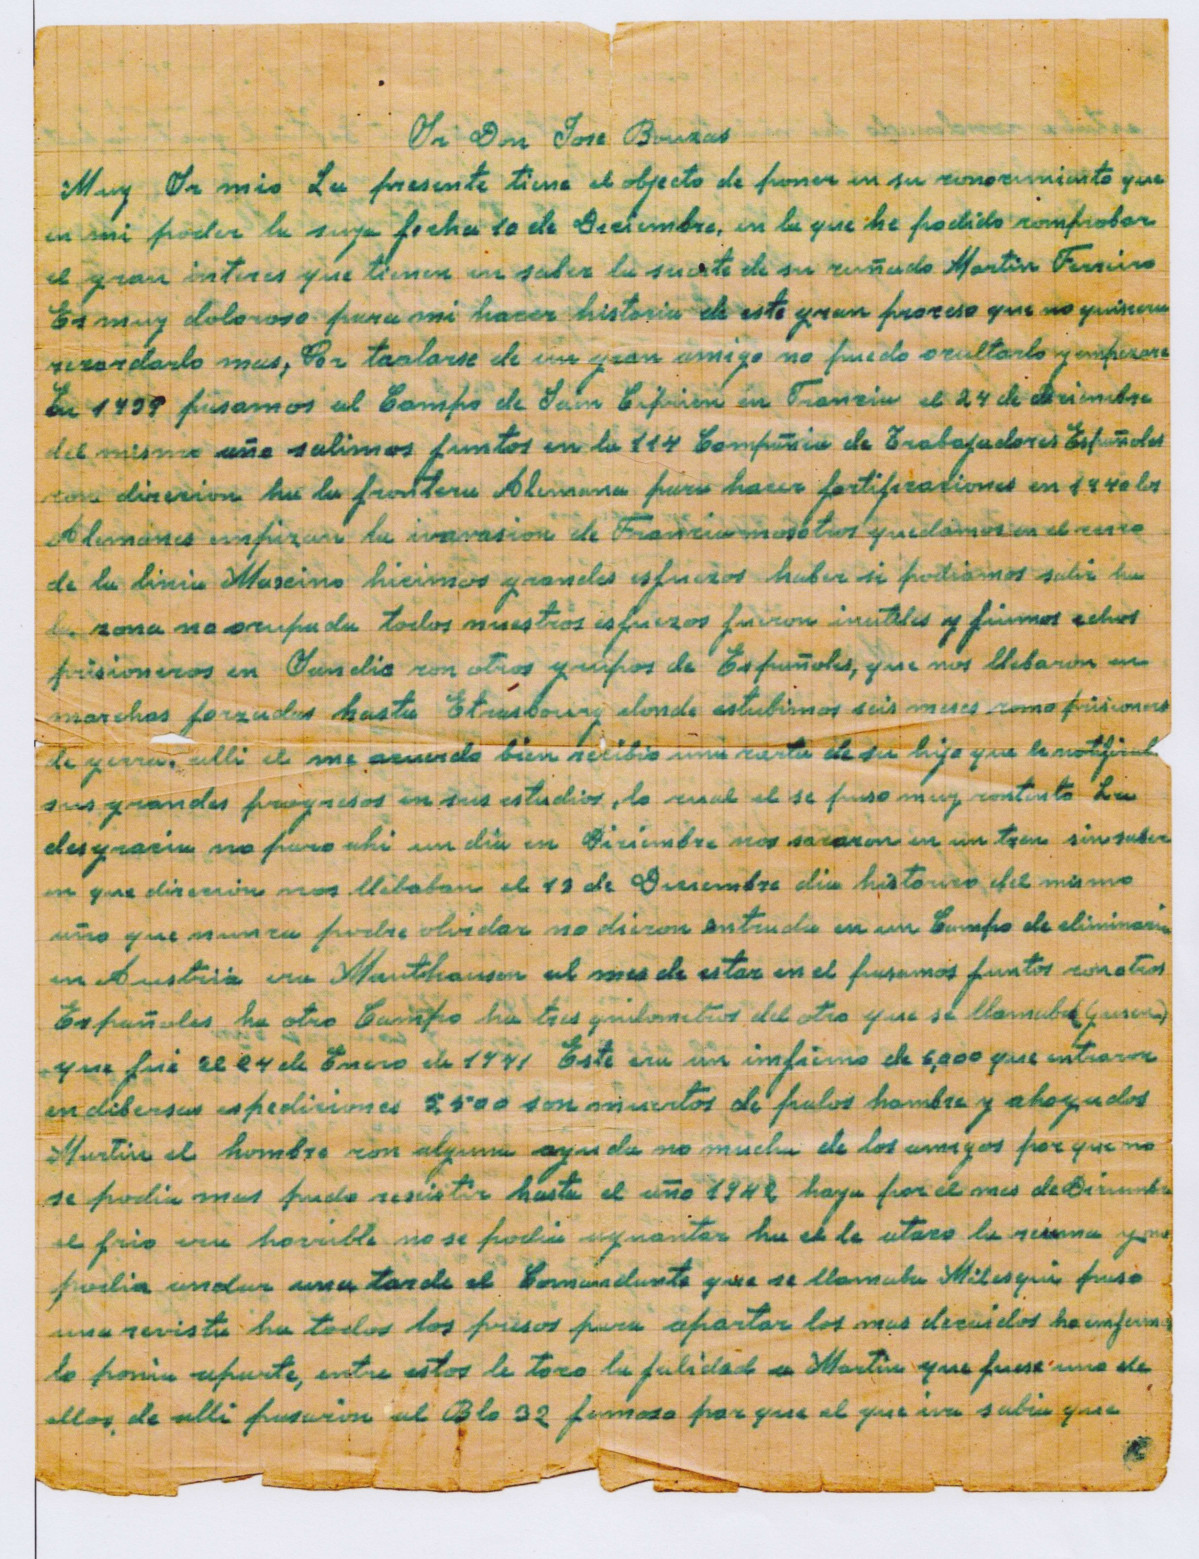 Sr Don Jose Bouzas
Muy Sr mio La presente tiene el objecto de poner en su conocimiento que
en mi poder la suya fecha 10 de Deciembre, en la que he podido comprobar
el gran interes que tienen en saber la suerte de su cuñado Martin Ferreiro
Es muy doloroso para mi hacer historia de este gran proceso que no quisiera
recordarlo mas, Por tratarse de un gran amigo no puedo ocultarlo y empezare
En 1939 pasamos al Campo de San Ciprien en Francia el 24 de Deciembre
del mismo año salimos juntos en la 114 Compañia de Trabajadores Españoles
con direcion ha la frontera Alemana para hacer fortificaciones en 1940 los
Alemanes empizan la invasion de Francia nosotros quedamos en el cerco
de la linia Mascino hicimos grandes esfuezos haber si podiamos salir ha
la zona no ocupada todos nuestros esfuezos fueron inutiles y fuimos echos
prisioneros en Sandie con otros grupos de Españoles, que nos llebaron en
marchas forzadas hasta Etrasbourg donde estubimos seis meses como prisioneros
de gerra, alli el me acuerdo bien recibio una carta de su hijo que le notificab
sus grandes progresos en sus estudios, lo cual el se puso muy contento La
desgracia no paro ahi un dia en Diciembre nos sacaron en un tren sin saber
en que direcion nos llebaban el 13 de Deciembre dia historico del mismo
año que nunca podre olvidar no dieron entrada en un Campo de eliminacio
en Austria era Mauthausen al mes de estar en el pasamos juntos con otros
Españoles ha otro Campo ha tres quilometros del otro que se llamaba (Gusen)
que fué el 24 de Enero de 1941 Este era un imfierno de 6,000 que entraron
en dibersas espediciones 5500 son muertos de palos hambre y ahogados
Martin el hombre con alguna ayuda no mucha de los amigos por que no
se podia mas pudo resistir hasta el año 1942 haya por el mes de Diciembre
el frio era horrible no se podia aguantar ha el le ataco la reuma y no
podia andar una tarde el Comandante que se llamaba Milesqui paso
una revista ha todos los presos para apartar los mas decaidos ha enfermos
lo ponia aparte, entre estos le toco la falidad a Martin que fuese uno de
ellos, de alli pasarion al Blo 32 famoso por que el que iva sabia que